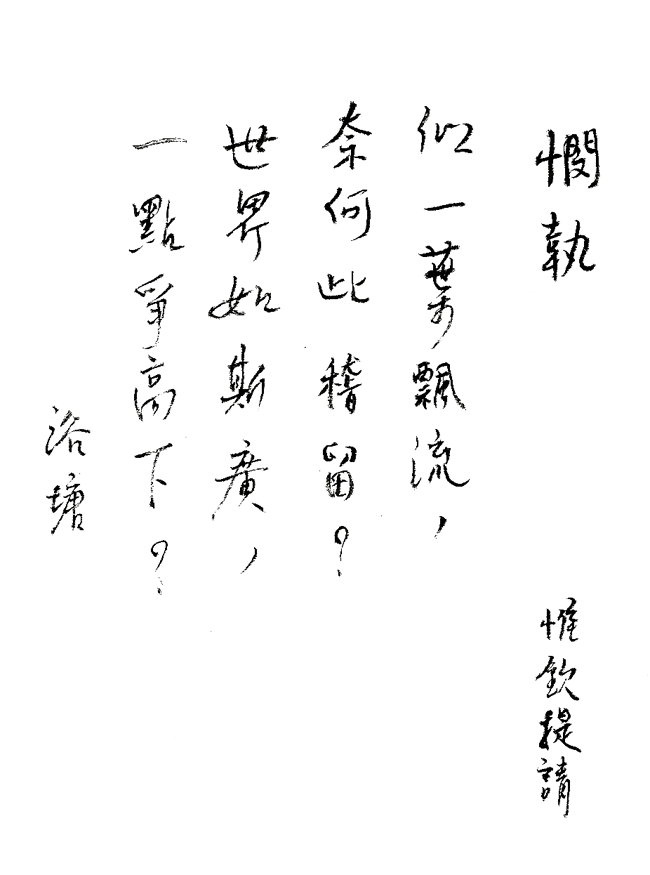 憫執
惟欽提請
似一葉飄流，
奈何此稽留？
世界如斯廣，
一點爭高下？
浴塘